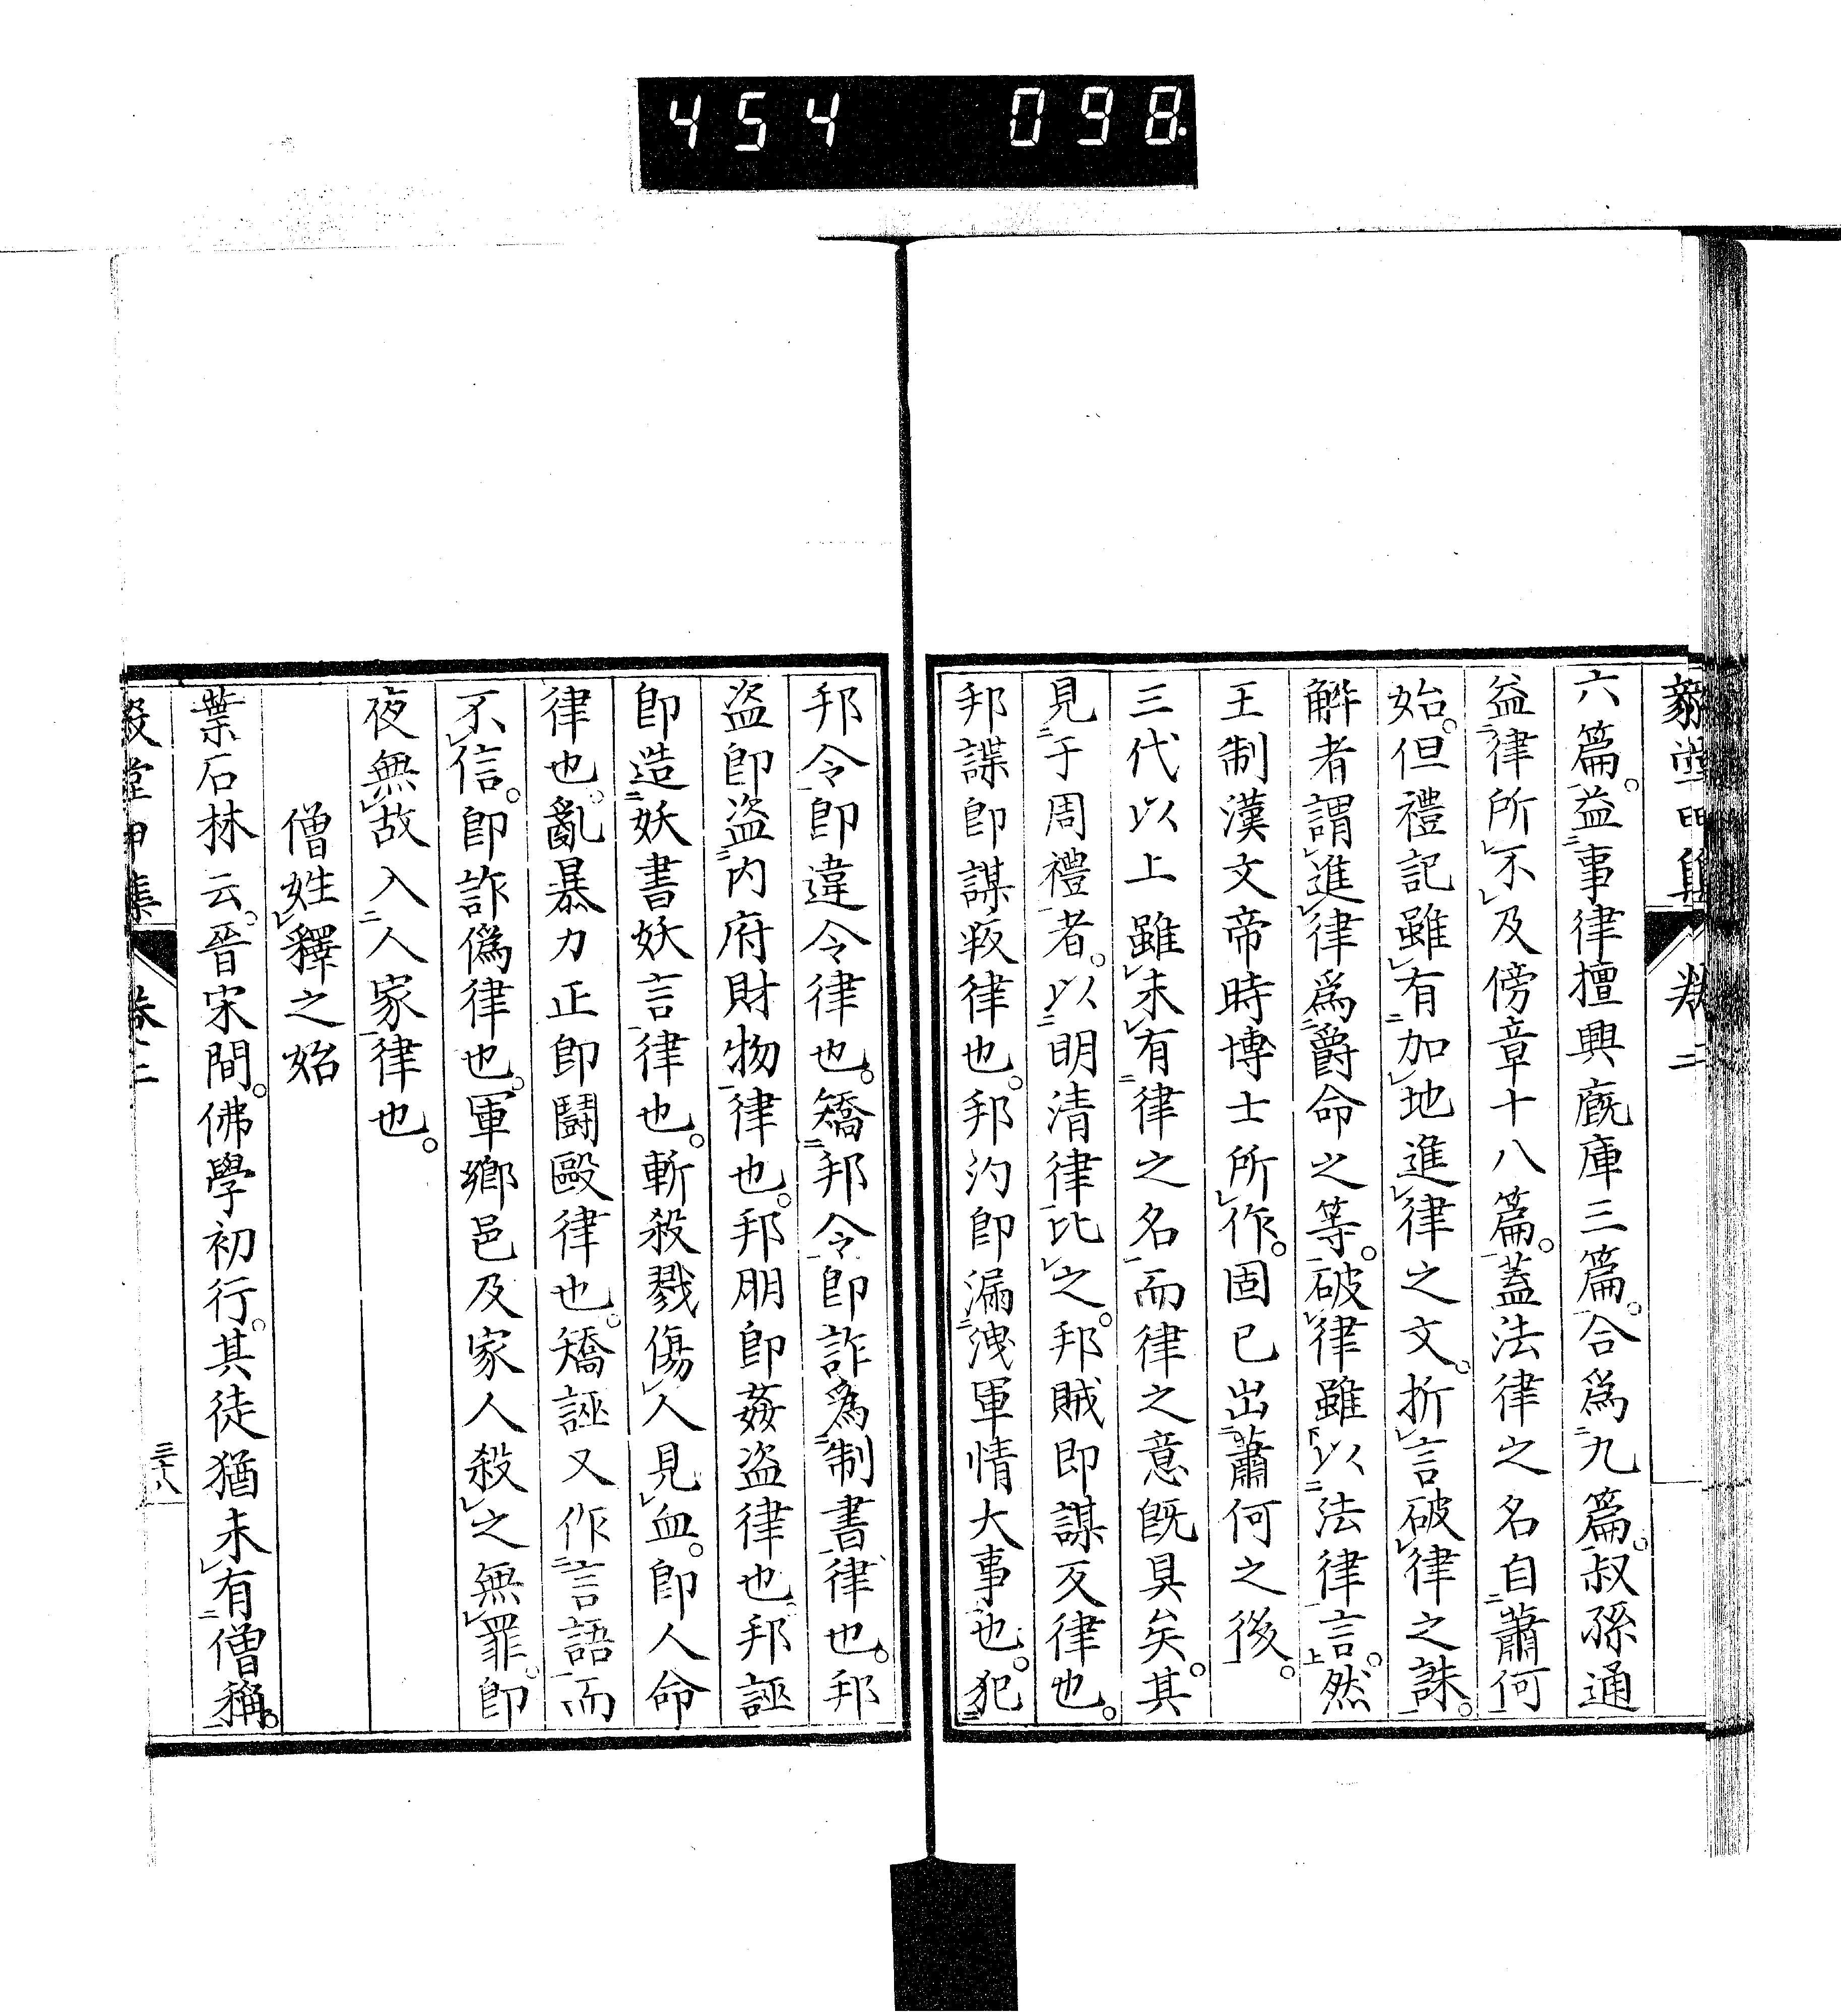 454 098
六篇。益事律擅興廐庫三篇。合爲九篇。叔孫通
益律所不及傍章十八篇。蓋法律之名自蕭何
始。但禮記雖有加地進律之文。折言破律之誅。
觧者謂進律爲爵命之等。破律雖以法律言。然
王制漢文帝時博士所作。固已出蕭何之後。
三代以上雖未有律之名而律之意旣具矣。其
見于周禮者。以明清律比之。邦賊即謀反律也。
邦諜即謀叛律也。邦汋即漏洩軍情大事也。犯
邦令即違令律也。矯邦令即詐爲制書律也。邦
盗即盗内府財物律也。邦朋即姦盗律也。邦誣
即造妖書妖言律也。斬殺戮傷人見血。即人命
律也。亂暴力正即鬪毆律也。矯誣又作言語而
不信。即詐僞律也。軍鄉邑及家人殺之無罪。即
夜無故入人家律也。
僧姓釋之始
葉石林云。晉宋間。佛學初行。其徒猶未有僧稱。
三十八